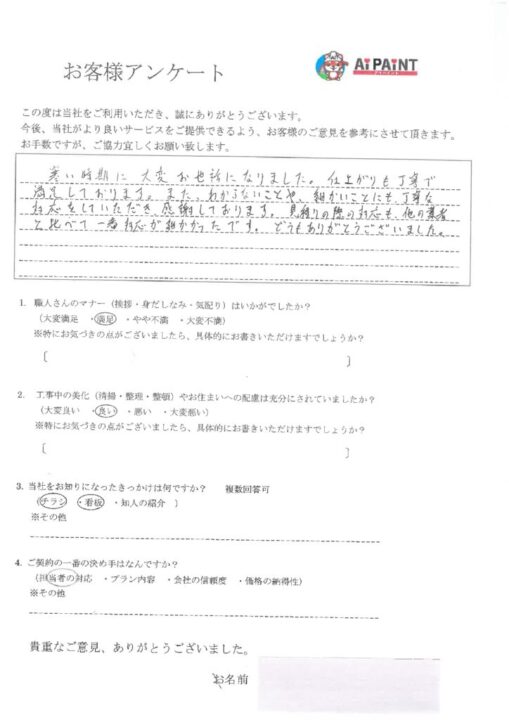 お客様アンケート
Ai PAiNT
アイペイント
この度は当社をご利用いただき、誠にありがとうございます。
今後、当社がより良いサービスをご提供できるよう、お客様のご意見を参考にさせて頂きます。
お手数ですが、ご協力宜しくお願い致します。
寒い時期に大変お世話になりました。仕上がりも丁寧で
満足しております。また、わからないことや、細かいことにも、丁寧な
対応をしていただき、感謝しております。見積りの際の対応も、他の業者
と比べて一番対応が細かかったです。どうもありがとうございました。
1. 職人さんのマナー（挨拶・身だしなみ・気配り）はいかがでしたか？
（大変満足 ・満足 ・やや不満 ・大変不満）
※特にお気づきの点がございましたら、具体的にお書きいただけますでしょうか？
〔 〕
2. 工事中の美化（清掃・整理・整頓）やお住まいへの配慮は充分にされていましたか？
（大変良い ・良い ・悪い ・大変悪い）
※特にお気づきの点がございましたら、具体的にお書きいただけますでしょうか？
〔 〕
3. 当社をお知りになったきっかけは何ですか？ 複数回答可
（チラシ ・看板 ・知人の紹介 ）
※その他
4. ご契約の一番の決め手はなんですか？
（担当者の対応 ・プラン内容 ・会社の信頼度 ・価格の納得性）
※その他
貴重なご意見、ありがとうございました。
お名前